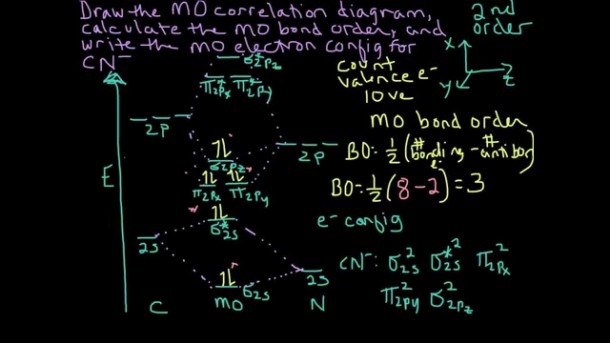 Draw the MO correlation diagram,
calculate the MO bond order, and
write the MO electron config for
CN⁻
2nd
order
x
y
z
count
valence e⁻
10 ve
MO bond order
BO = ½ (# bonding e⁻ - # antibon)
BO = ½ (8 - 2) = 3
e⁻ config
CN⁻: σ2s² σ*2s² π2px²
π2py² σ2pz²
E
σ*2pz
π*2px π*2py
2p
2p
σ2pz
π2px π2py
σ*2s
2s
2s
σ2s
C
MO
N